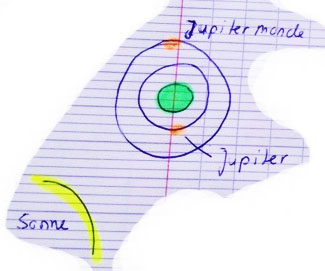 Jupitermonde
Jupiter
Sonne